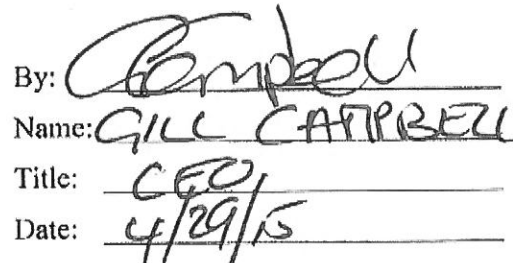 By: GCampbell
Name: GILL CAMPBELL
Title: CEO
Date: 4/29/15